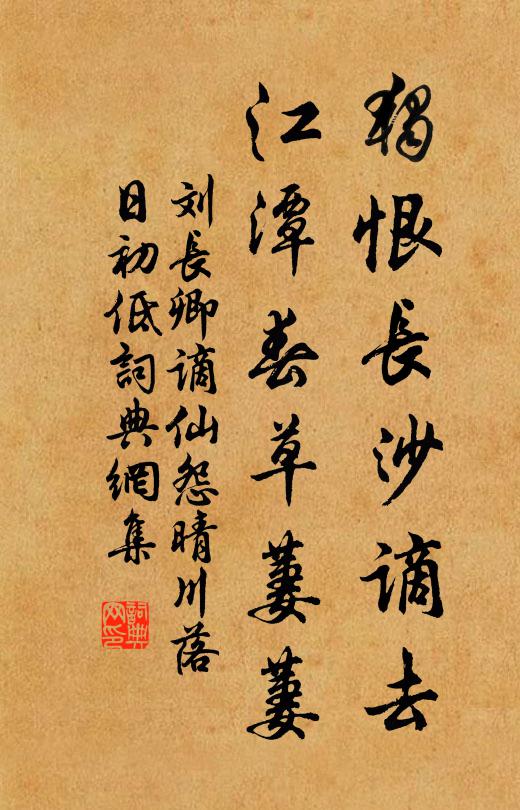 獨恨長沙謫去
江潭春草萋萋
刘長卿謫仙怨晴川落
日初低詞典網集
詞典
网印